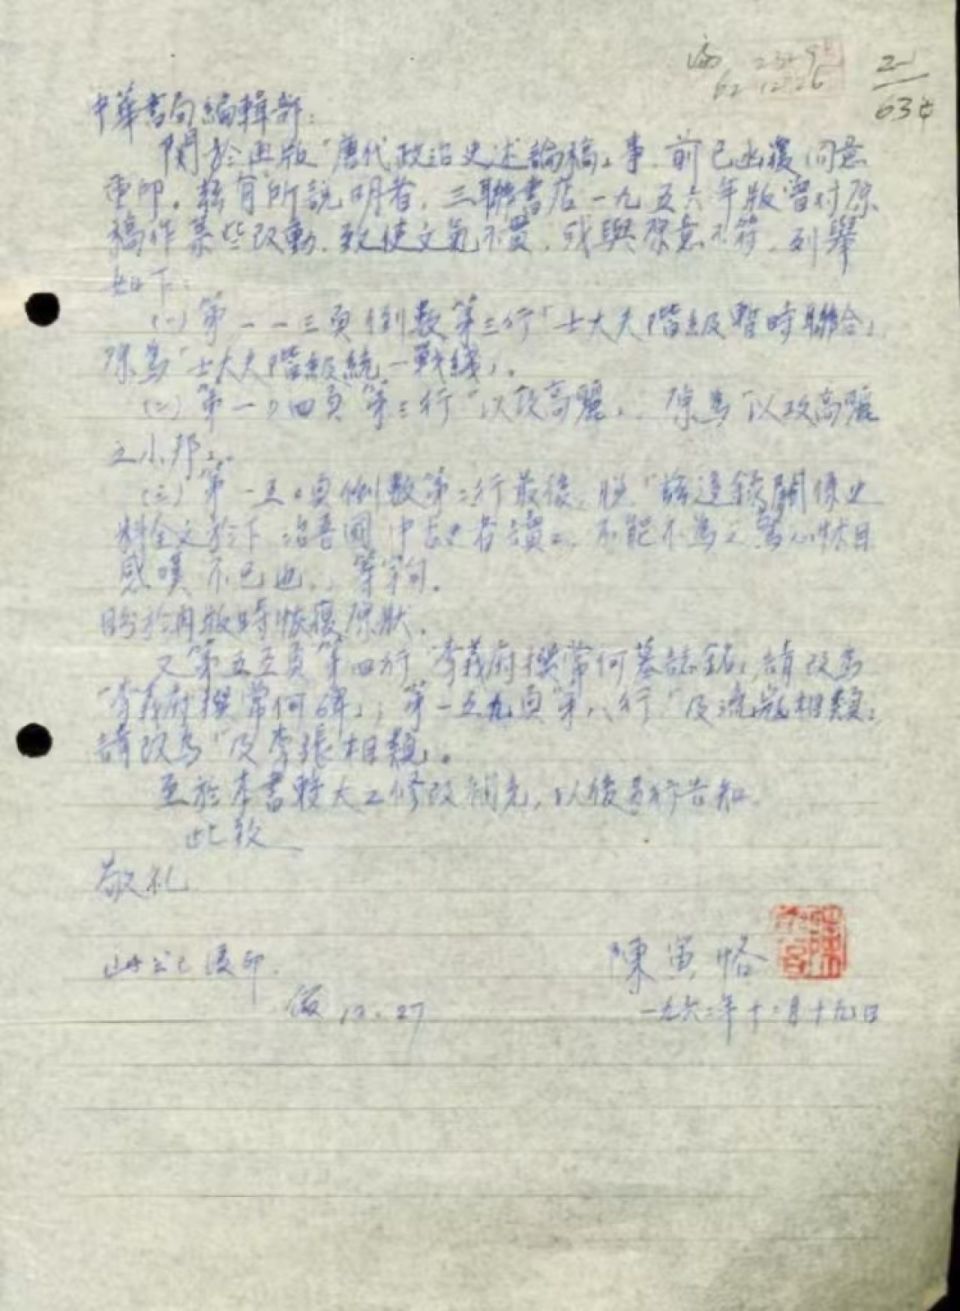 62 12 26
2-1
63
中華書局編輯部：
關於出版「唐代政治史述論稿」事，前已函復同意
重印。茲有所說明者，三聯書店一九五六年版曾对原
稿作某些改動，致使文氣不貫，或與原意不符，列舉
如下：
（一）第一一三頁倒數第三行「士大夫階級暫時聯合」
原為「士大夫階級統一戰綫」。
（二）第一〇四頁第三行「以攻高麗」，原為「以攻高麗
之小邦」。
（三）第一五〇頁倒數第二行最後，脫「錄關係史
料全文於下，治吾國中古史者讀之，不能不為之驚心怵目
感嘆不已也」等句。
盼於再版時恢復原狀。
又第五五頁第四行「李義府撰常何墓誌銘」請改為
「李義府撰常何碑」；第一五九頁第八行「及流崑相類」
請改為「及李張相類」。
至於本書較大之修改補充，以後另行告知。
此致
敬礼
陳寅恪
一九六二年十二月十九日
復印
12.27